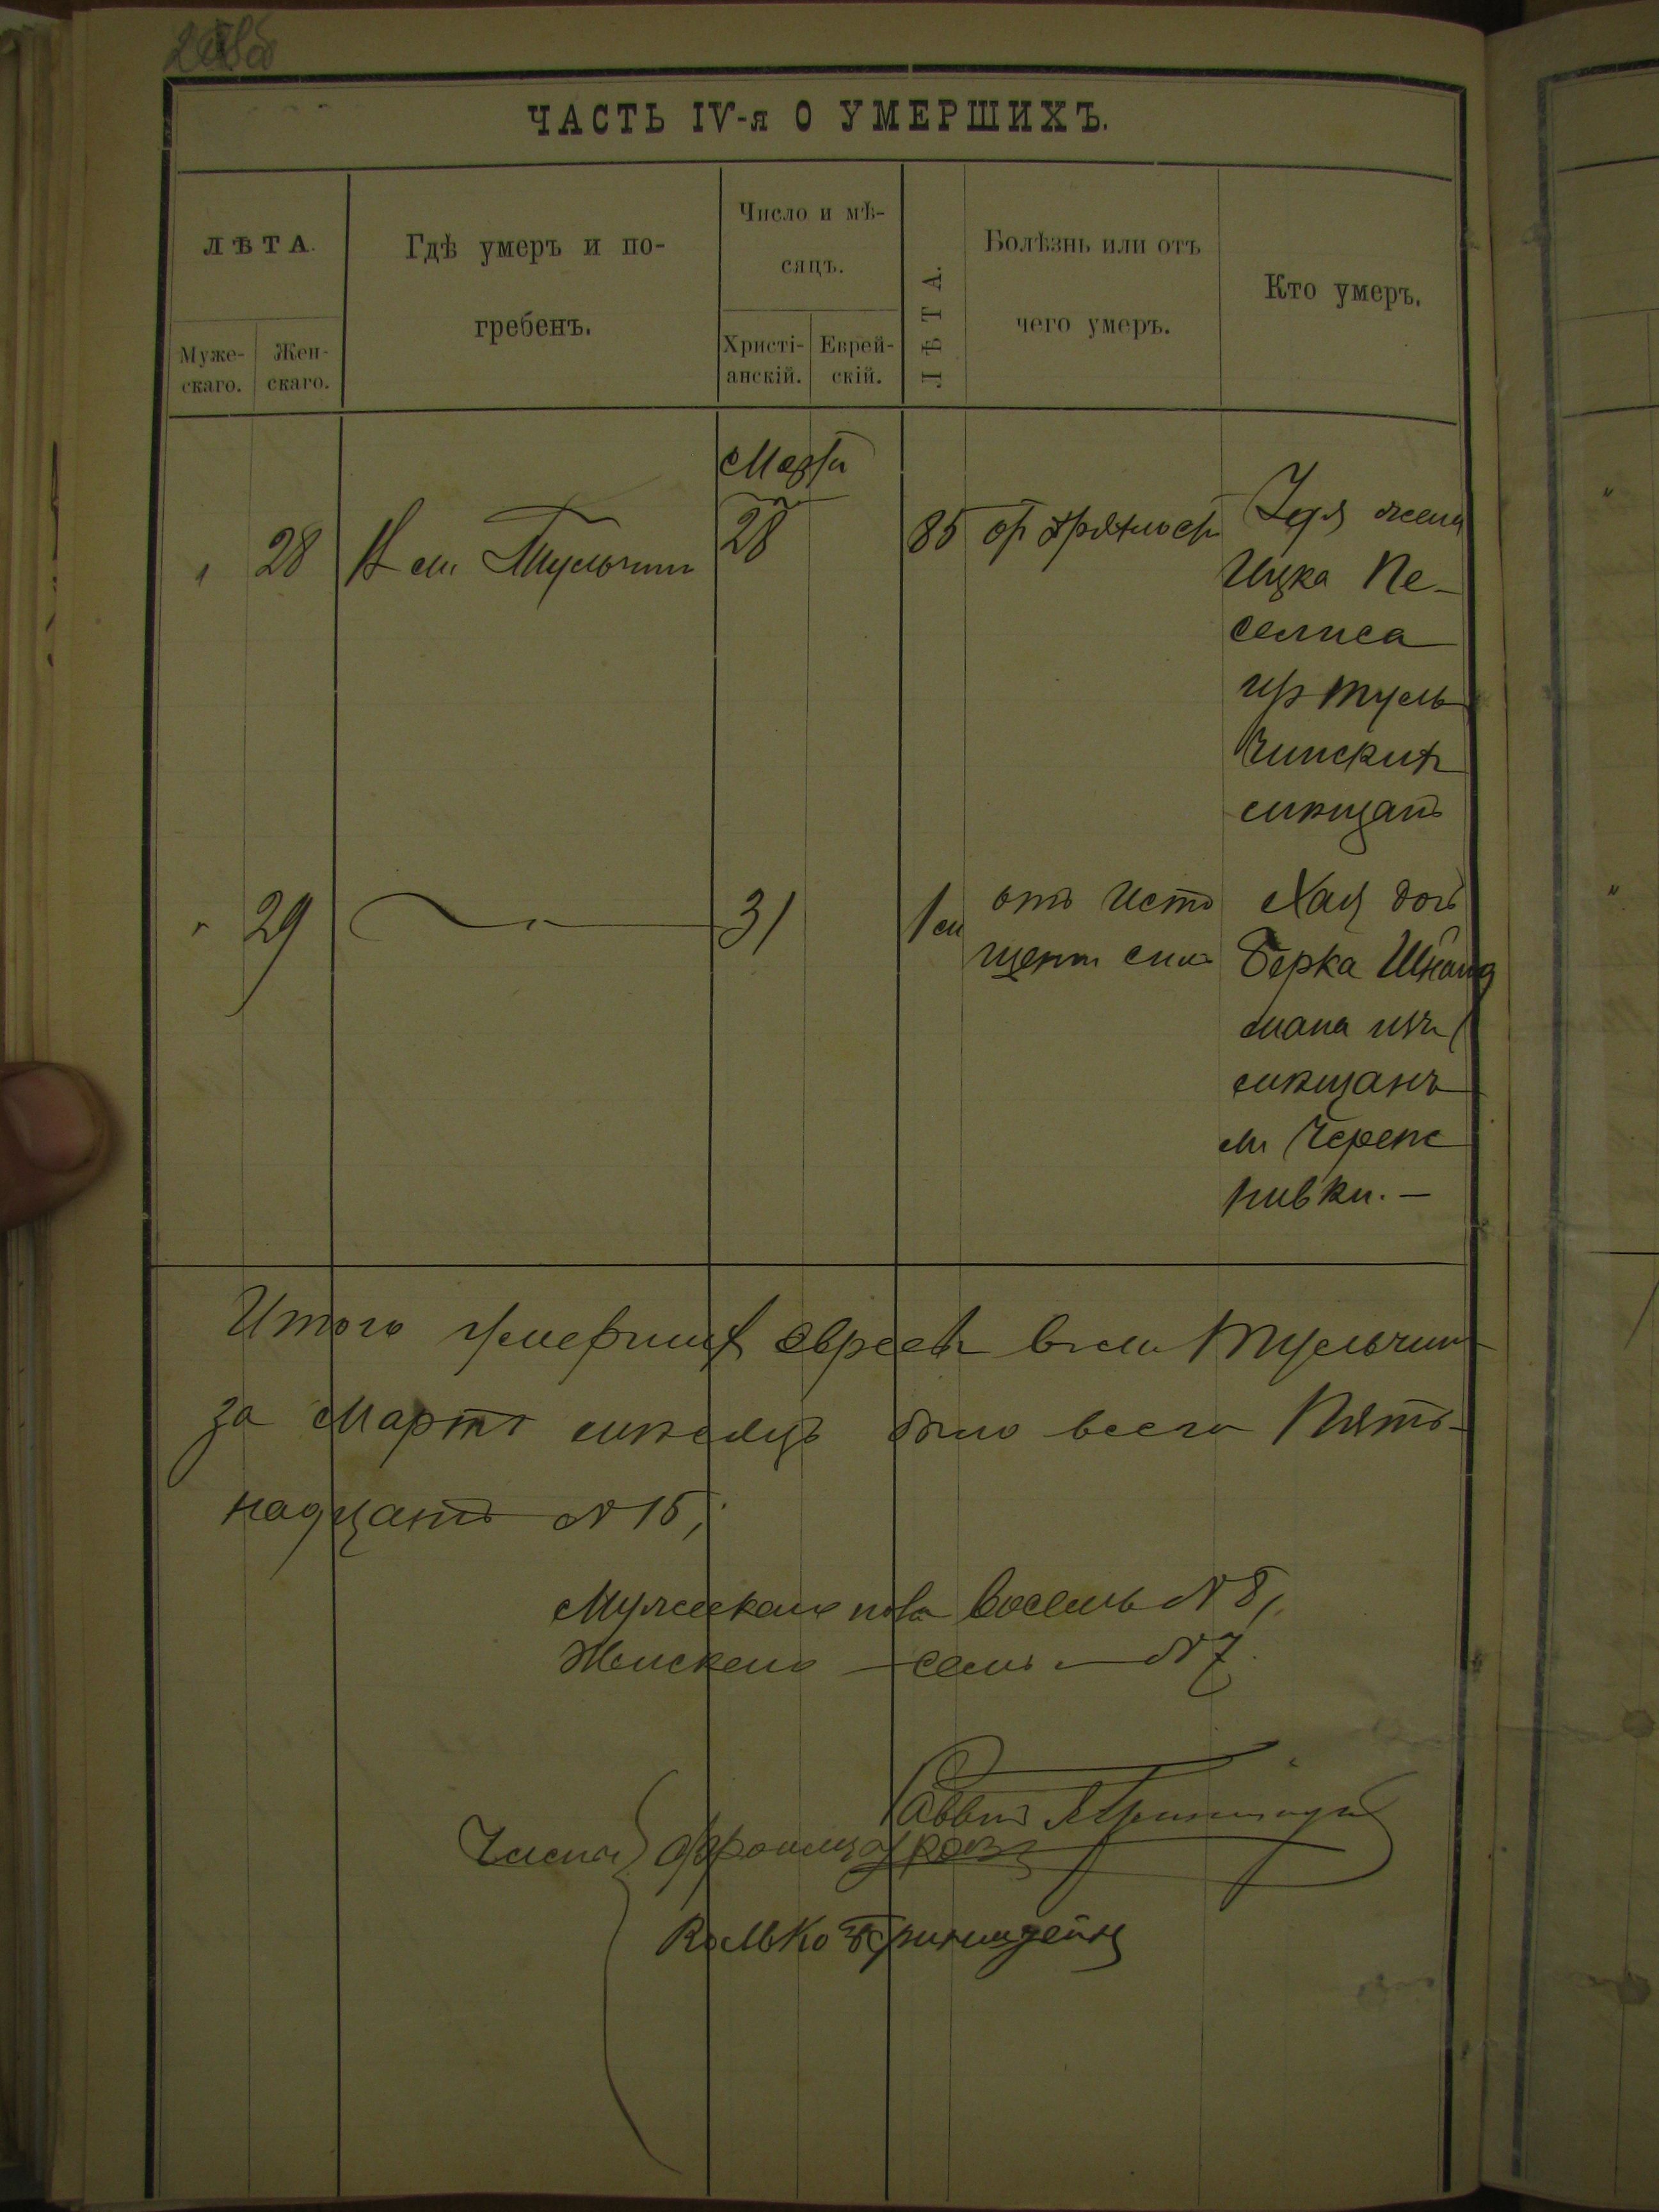 ЧАСТЬ IV-я О УМЕРШИХЪ.
ЛѢТА.
Муже-
скаго.
Жен-
скаго.
Гдѣ умеръ и по-
гребенъ.
Число и мѣ-
сяцъ.
Христі-
анскій.
Еврей-
скій.
ЛѢТА.
Болѣзнь или отъ
чего умеръ.
Кто умеръ.
Марта
28
м. Тульчин
28
85
от
жена
Ицка Пе-
селиса
изъ Туль
чинских
мѣщанъ
29
31
1 м
отъ исто
щен сил
Хая дочь
Берка Шнайд
мана изъ
мѣщанъ
м. Черепе
шивки. —
Итого умерших евреев въ м. Тульчин
за Мартъ мѣсяцъ было всего Пять-
надцать № 15,
Мужескаго пола восемь № 8,
Женскаго — семь — № 7
Члены
Раввинъ
Волько Гринштейнъ